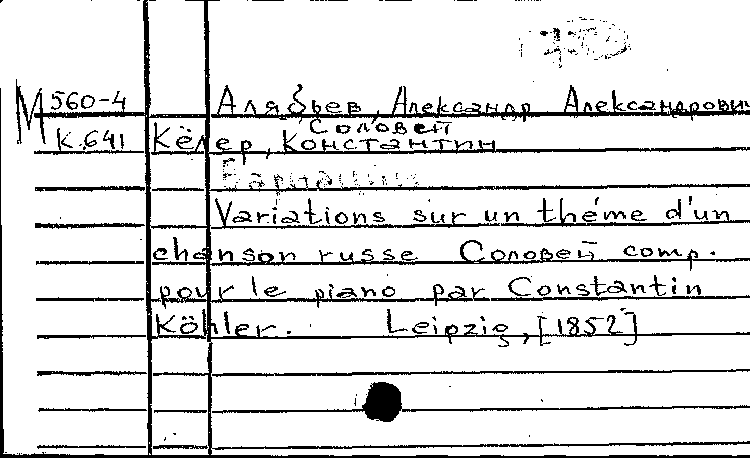 М 560-4 Алябьев, Александр Александрович
Соловей
К.641 Кёлер, Константин
Вариации
Variations sur un théme d'un
chanson russe Соловей comp.
pour le piano par Constantin
Köhler. Leipzig, [1852]